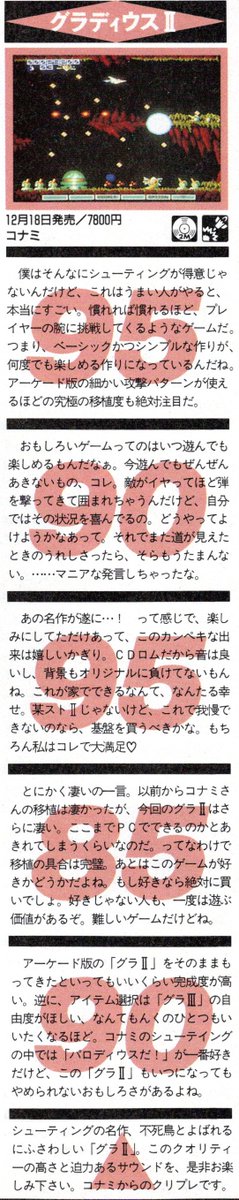 グラディウスⅡ
12月18日発売／7800円
コナミ
僕はそんなにシューティングが得意じゃ
ないんだけど、これはうまい人がやると、
本当にすごい。慣れれば慣れるほど、プレ
イヤーの腕に挑戦してくるようなゲームだ。
つまり、ベーシックかつシンプルな作りが、
何度でも楽しめる作りになっているんだね。
アーケード版の細かい攻撃パターンが使え
るほどの究極の移植度も絶対注目だ。
95
おもしろいゲームってのはいつ遊んでも
楽しめるもんだなぁ。今遊んでもぜんぜん
あきないもの、コレ。敵がイヤってほど弾
を撃ってきて囲まれちゃうんだけど、自分
ではその状況を喜んでるの。どうやってよ
けようかなあって、それでまた道が見えた
ときのうれしさったら、そらもうたまんな
い。……マニアな発言しちゃったな。
90
あの名作が遂に…！　って感じで、楽し
みにしてただけあって、このカンペキな出
来は嬉しいかぎり。ＣＤロムだから音は良
いし、背景もオリジナルに負けてないもん
ね。これが家でできるなんて、なんたる幸
せ。某ストⅡじゃないけど、これで我慢で
きないのなら、基盤を買うべきかな。もち
ろん私はコレで大満足♡
95
とにかく凄いの一言。以前からコナミさ
んの移植は凄かったが、今回のグラⅡはさ
らに凄い。ここまでＰＣでできるのかとあ
きれてしまうくらいなのだ。ってなわけで
移植の具合は完璧。あとはこのゲームが好
きかどうかだよね。もし好きなら絶対に買
いでしょ。好きじゃない人も、一度は遊ぶ
価値があるぞ。難しいゲームだけどね。
85
アーケード版の「グラⅡ」をそのままも
ってきたといってもいいくらい完成度が高
い。逆に、アイテム選択は「グラⅢ」の自
由度がほしい、なんてもんくのひとつもい
いたくなるほど。コナミのシューティング
の中では「パロディウスだ！」が一番好き
だけど、この「グラⅡ」もいつになっても
やめられないおもしろさがあるよね。
90
シューティングの名作、不死鳥とよばれる
にふさわしい「グラⅡ」。このクオリティ
ーの高さと迫力あるサウンドを、是非お楽
しみ下さい。コナミからのクリプレです。